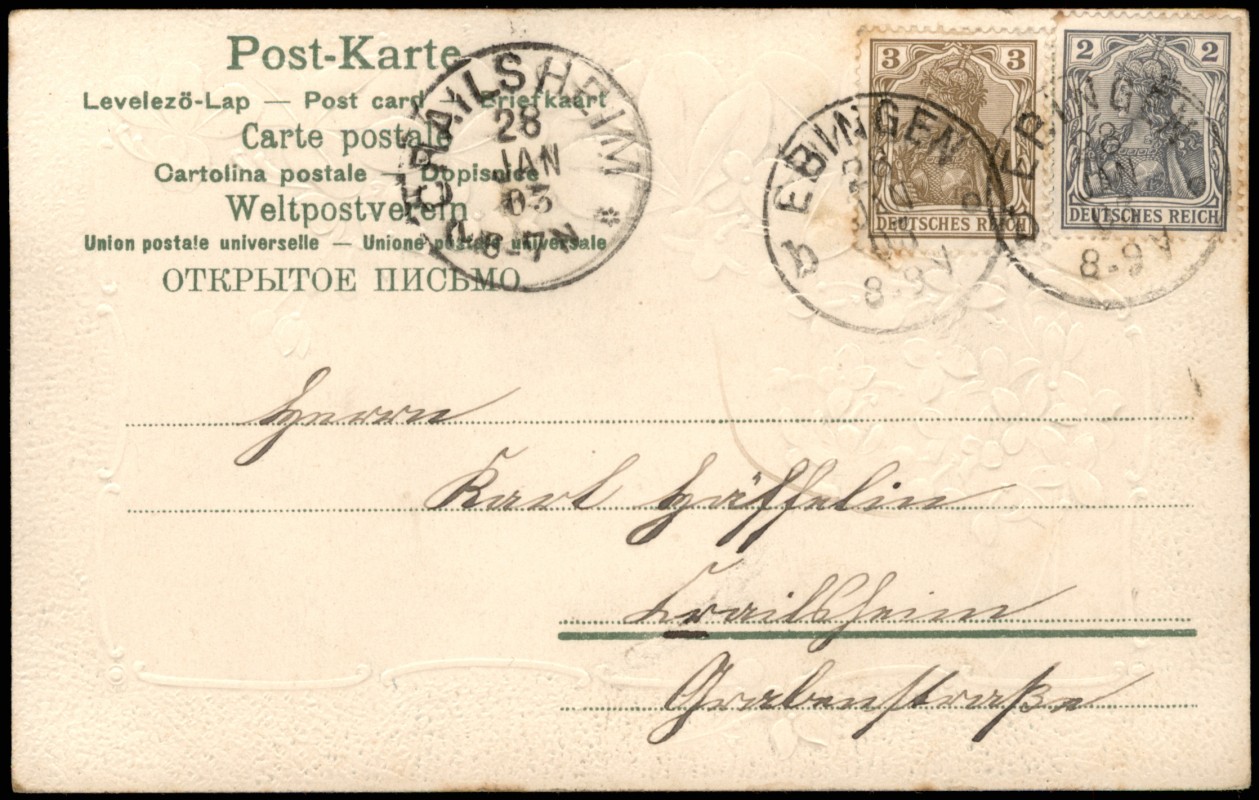 Post-Karte
Levelező-Lap — Post card — Briefkaart
Carte postale
Cartolina postale — Dopisnice
Weltpostverein
Union postale universelle — Unione postale universale
ОТКРЫТОЕ ПИСЬМО
CRAILSHEIM
28
JAN
03
6-7N
3 3
DEUTSCHES REICH
2 2
DEUTSCHES REICH
EBINGEN
8-9V
EBINGEN
8-9V
Herrn
Karl Häffelin
Crailsheim
Grabenstraße